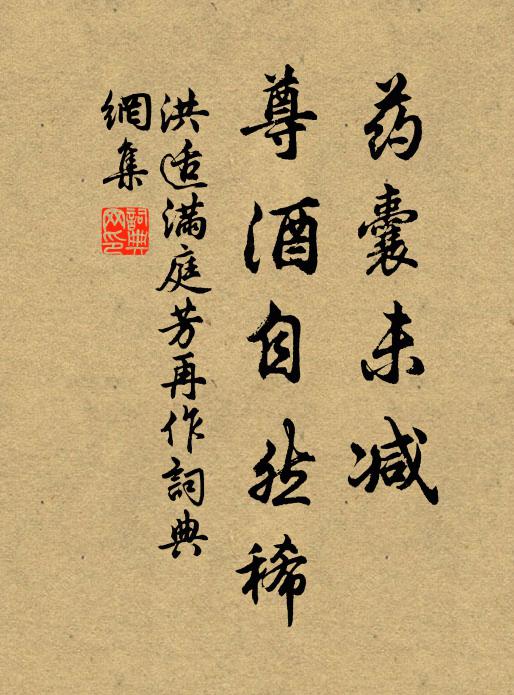 药囊未减
尊酒自然稀
洪适满庭芳再作詞典
網集
詞典
网印